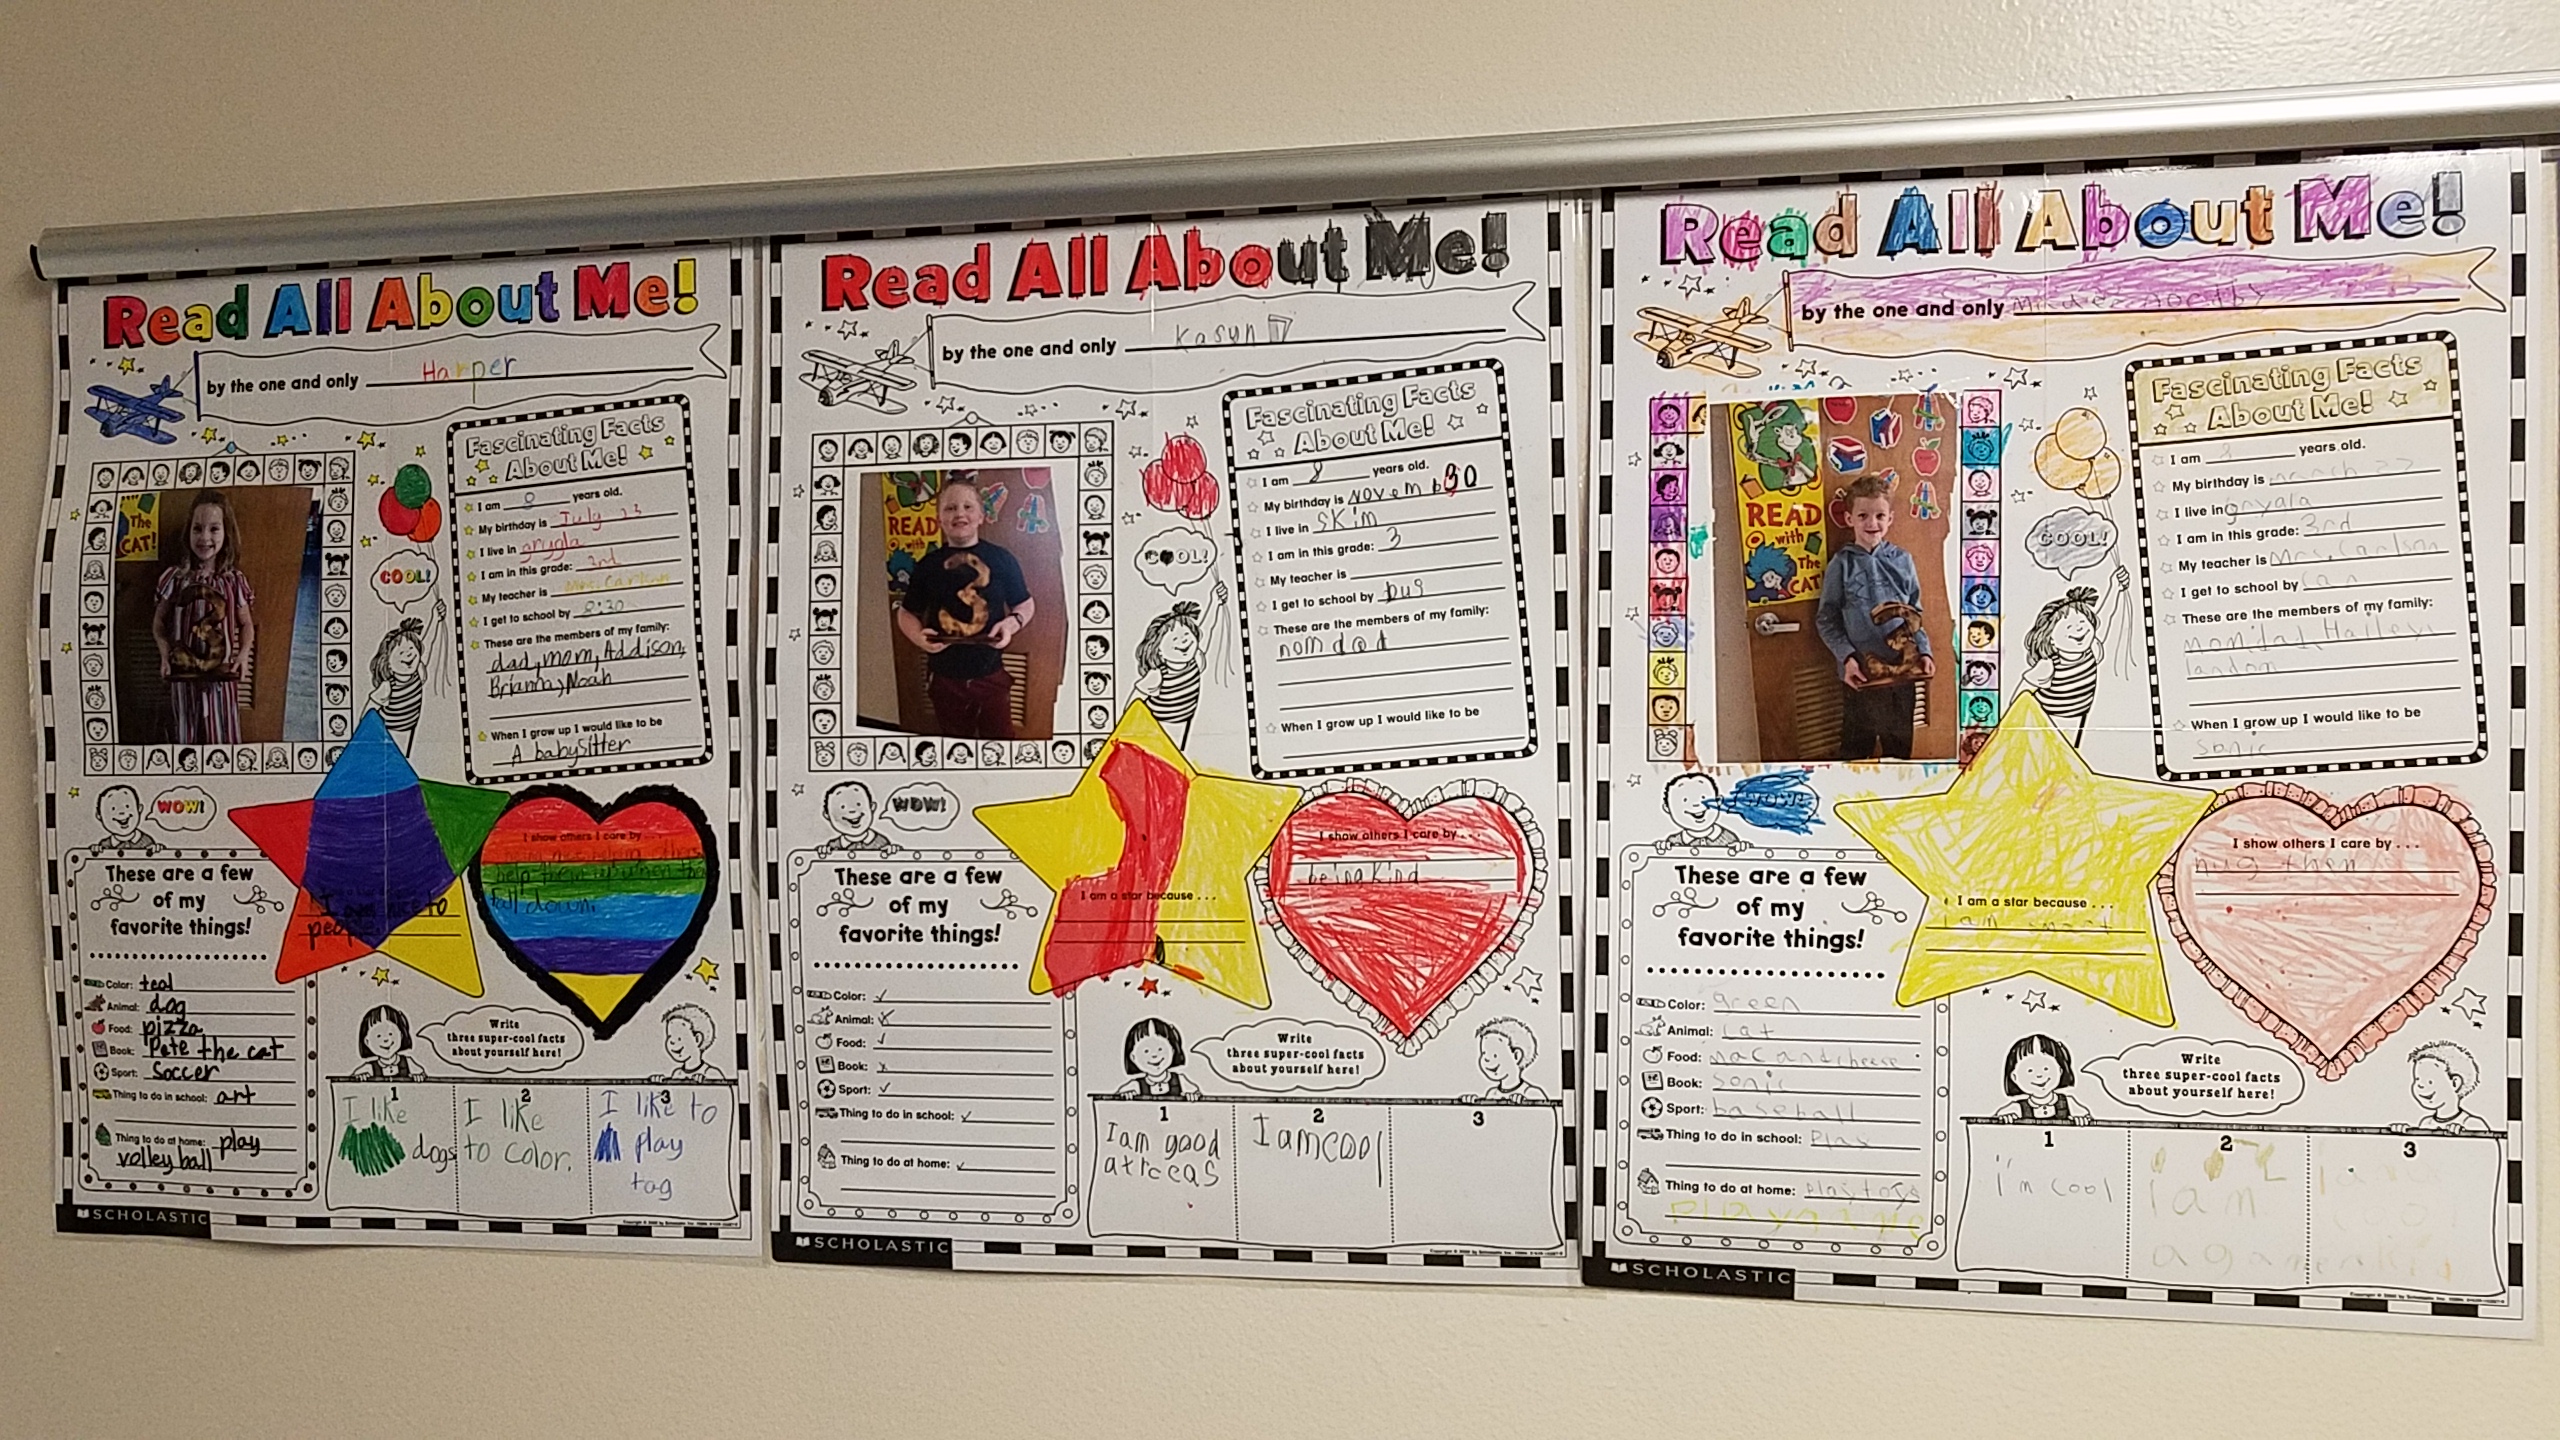 Read All About Me!
by the one and only Harper
The
CAT!
COOL!
Fascinating Facts
About Me!
I am 8 years old.
My birthday is July 23
I live in grygla
I am in this grade: 3rd
My teacher is Mrs. Carlson
I get to school by 8:30
These are the members of my family:
dad, mom, Addison,
Brianna, Noah
When I grow up I would like to be
A babysitter
WOW!
These are a few
of my
favorite things!
Color: teal
Animal: dog
Food: pizza
Book: Pete the cat
Sport: Soccer
Thing to do in school: art
Thing to do at home: play
volleyball
to
people
I show others I care by . . .
help them up when
fall down.
Write
three super-cool facts
about yourself here!
1
I like
dogs
2
I like
to color.
3
I like to
play
tag
SCHOLASTIC
Read All About Me!
by the one and only Kasyn
READ
with
COOL!
Fascinating Facts
About Me!
I am 8 years old.
My birthday is Novemb30
I live in SKim
I am in this grade: 3
My teacher is
I get to school by bus
These are the members of my family:
nom dad
When I grow up I would like to be
WOW!
These are a few
of my
favorite things!
Color:
Animal:
Food:
Book:
Sport:
Thing to do in school:
Thing to do at home:
I am a star because . . .
I show others I care by . . .
being Kind
Write
three super-cool facts
about yourself here!
1
I am good
at rceas
2
I am cool
3
SCHOLASTIC
Read All About Me!
by the one and only
READ
with
The
CAT!
COOL!
Fascinating Facts
About Me!
I am 8 years old.
My birthday is
I live in gryala
I am in this grade: 3rd
My teacher is Mrs. Carlson
I get to school by Car
These are the members of my family:
mom, dad, Hailey,
landon
When I grow up I would like to be
Sonic
WOW!
These are a few
of my
favorite things!
Color: green
Animal: Cat
Food: mac and cheese
Book: Sonic
Sport: baseball
Thing to do in school: Play
Thing to do at home: Play toys
I am a star because . . .
I am smart
I show others I care by . . .
hug them
Write
three super-cool facts
about yourself here!
1
i'm cool
2
I am
3
SCHOLASTIC